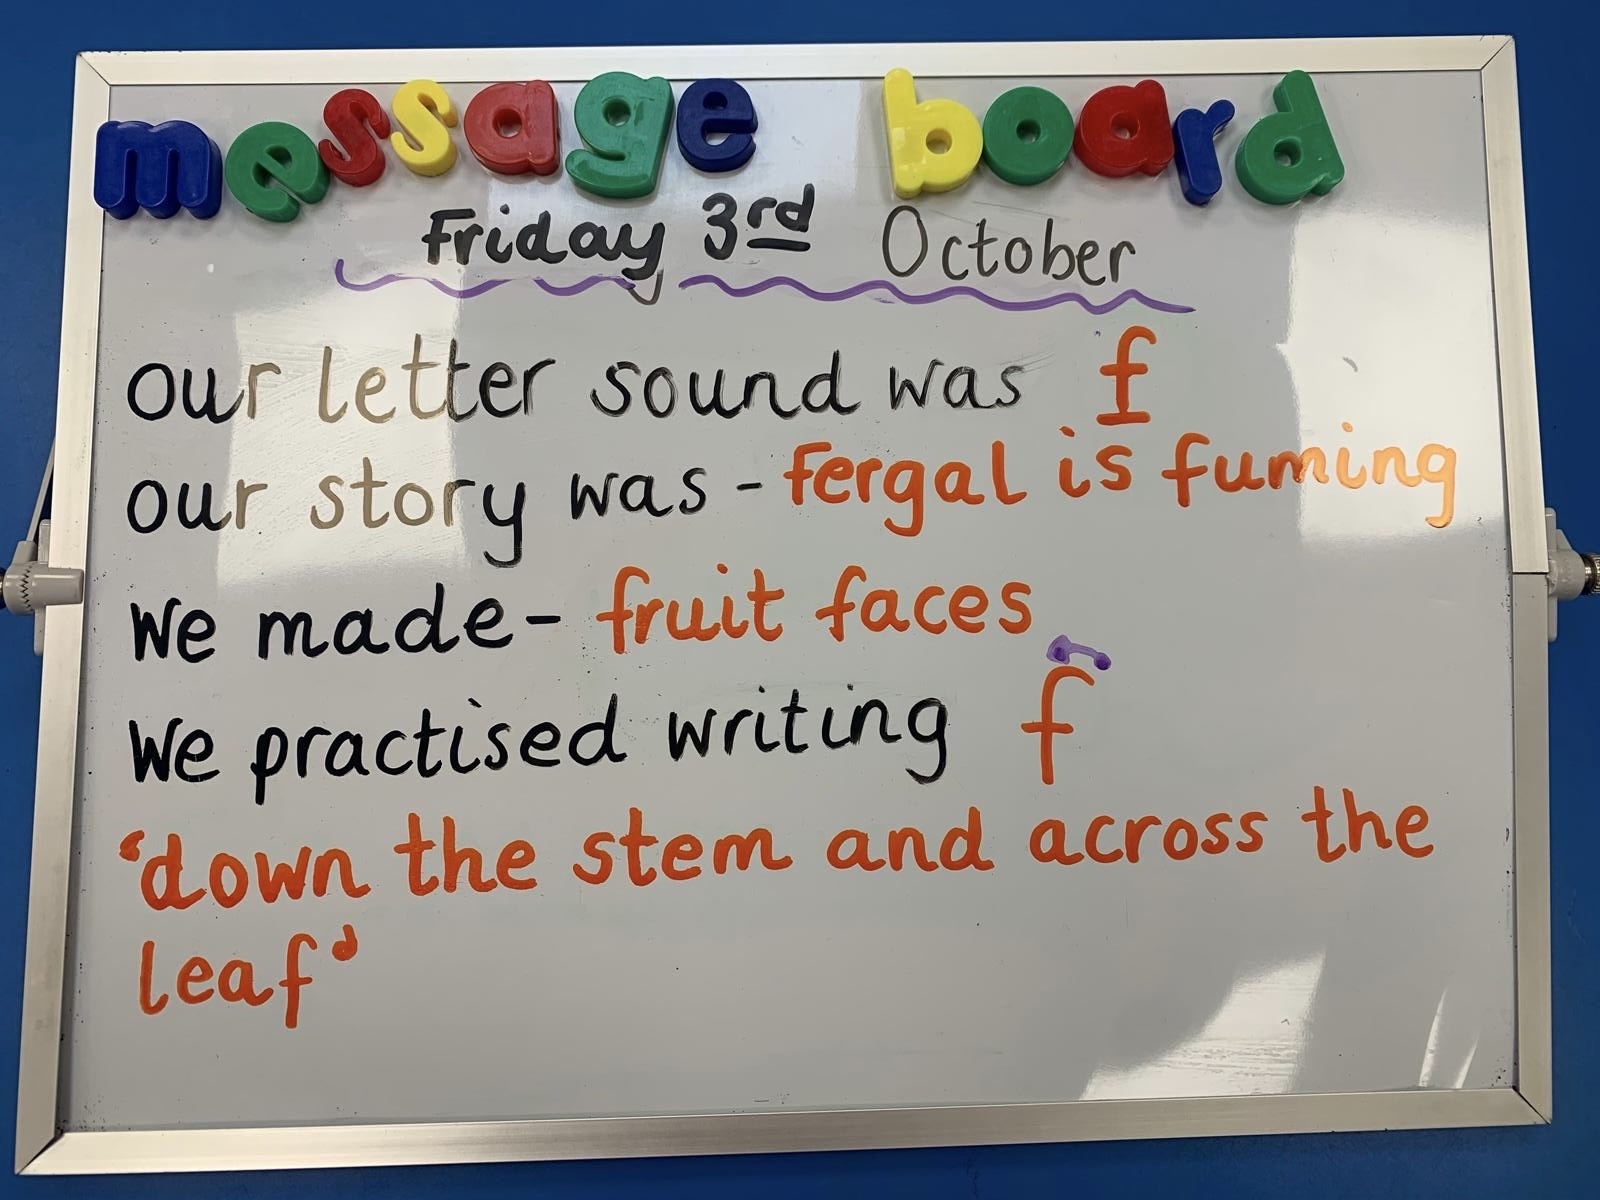 message board
Friday 3rd October
our letter sound was f
our story was - fergal is fuming
We made - fruit faces
We practised writing f
'down the stem and across the
leaf'